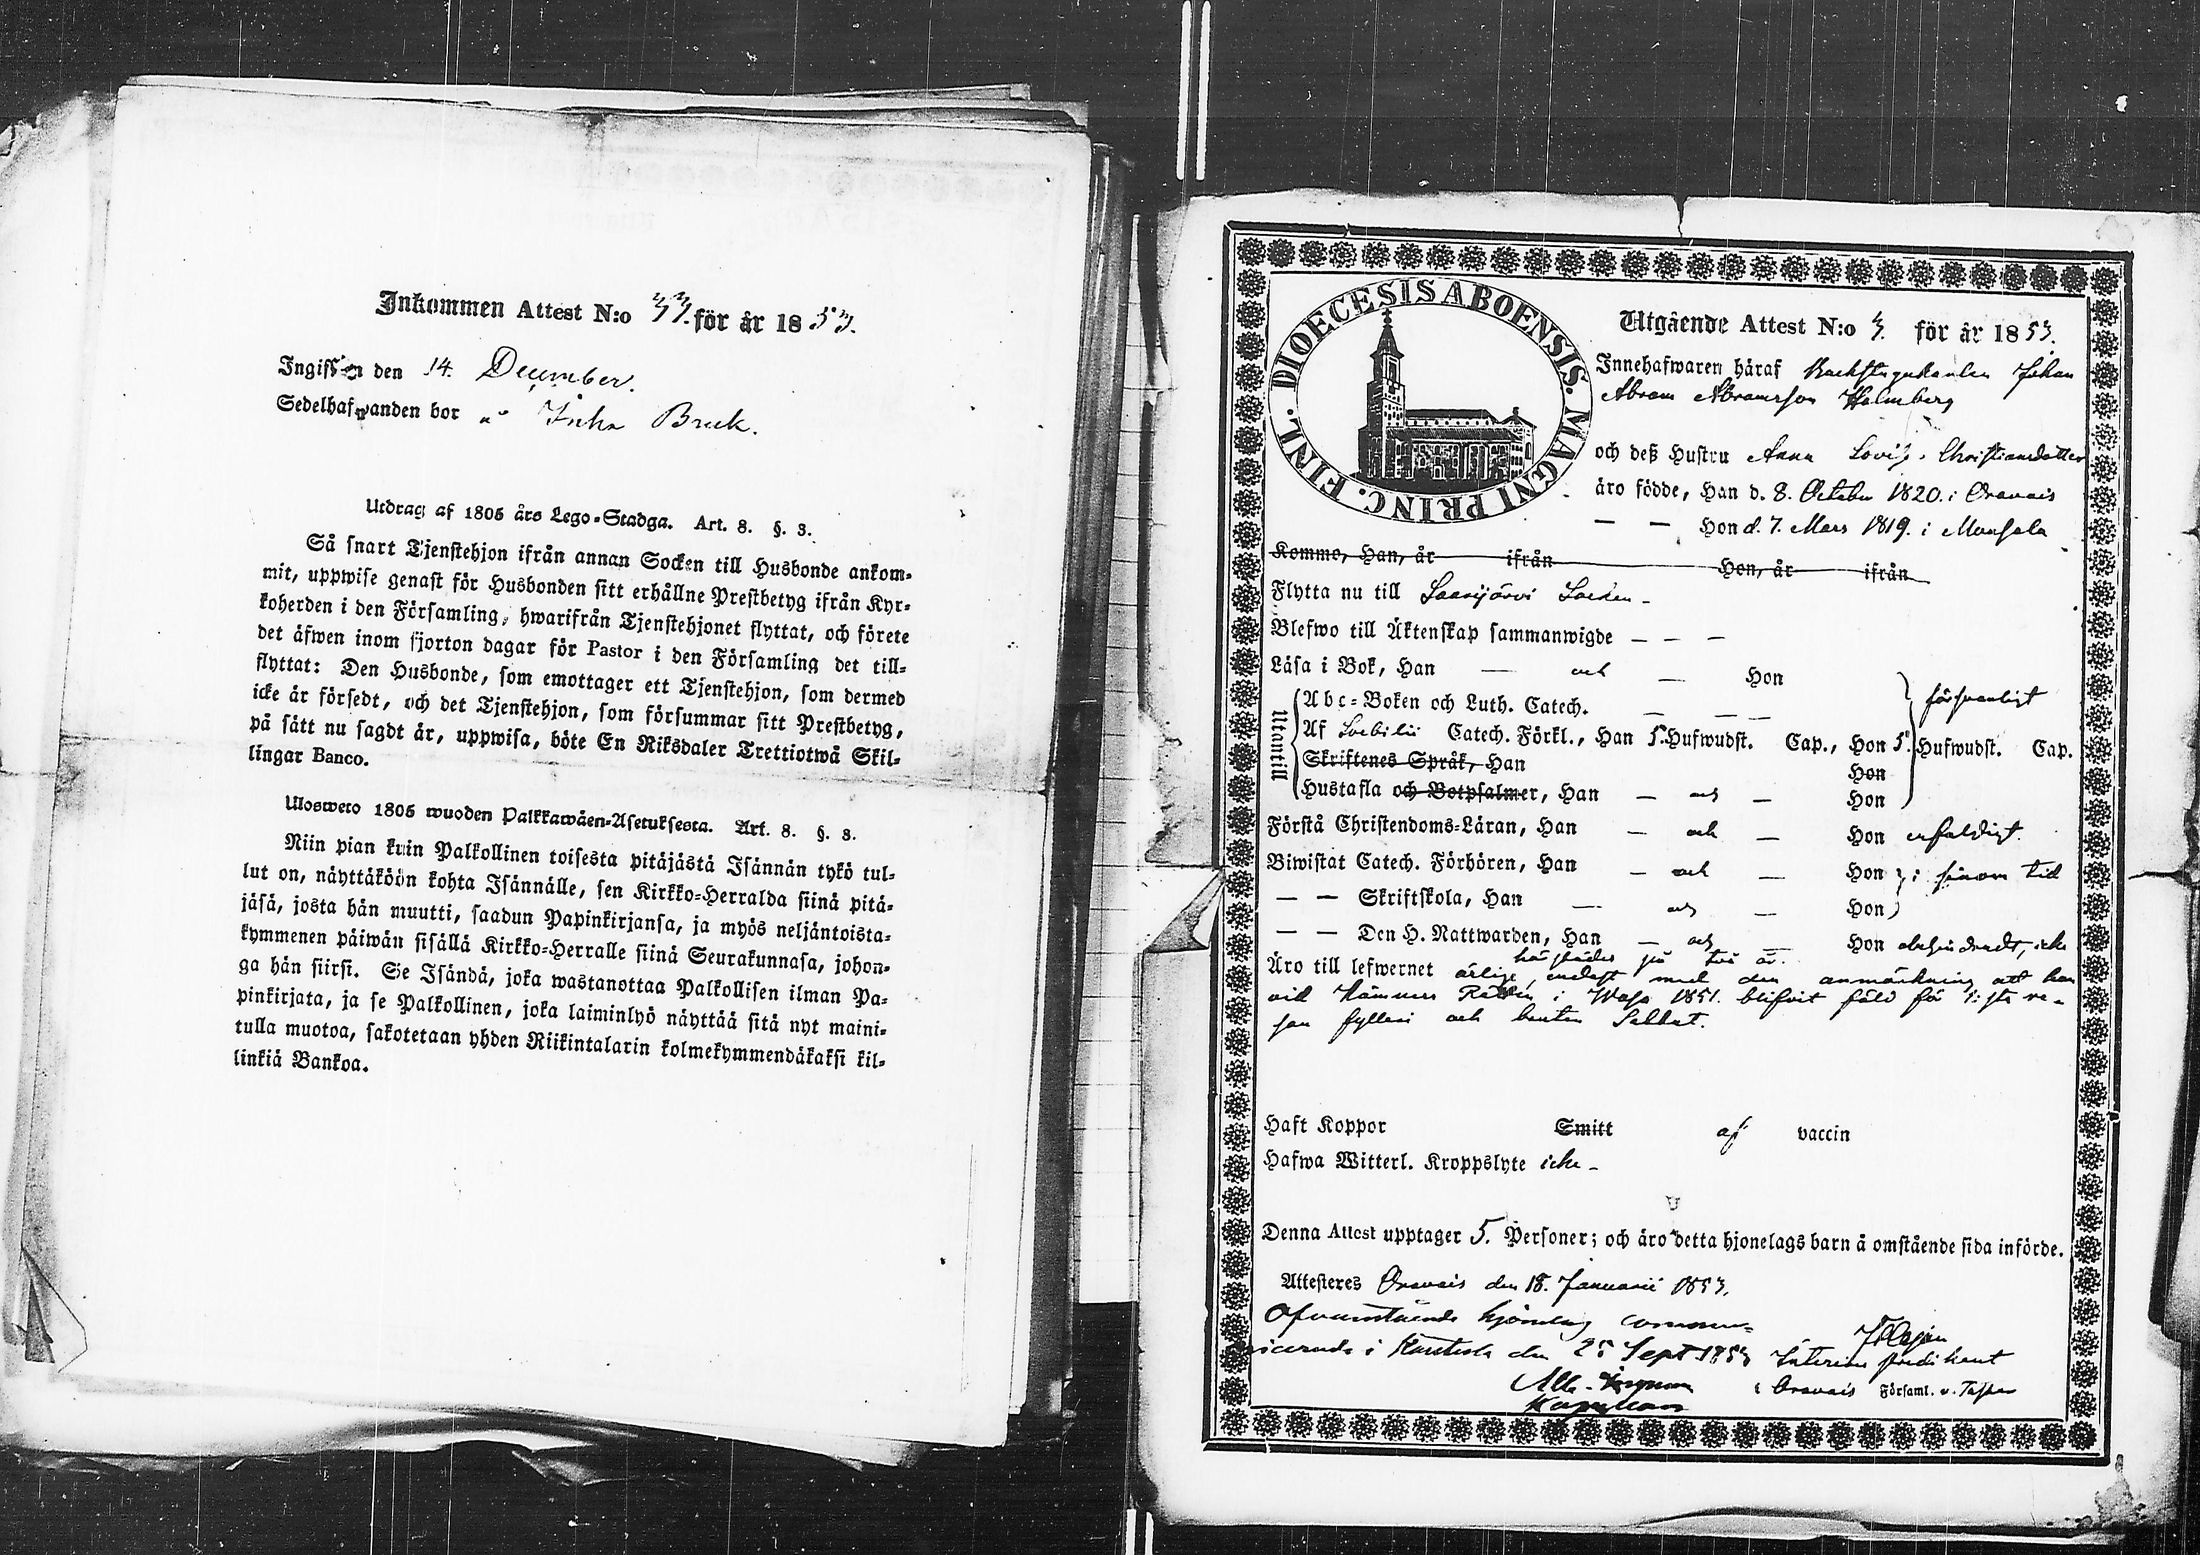 Inkommen Attest N:o 33. för år 1853.
Ingifven den 14. December.
Sedelhafwanden bor å Inha Bruk.
Utdrag af 1805 års Lego-Stadga. Art. 8. §. 3.
Så snart Tjenstehjon ifrån annan Socken till Husbonde ankom-
mit, uppwise genast för Husbonden sitt erhållne Prestbetyg ifrån Kyr-
koherden i den Församling, hwarifrån Tjenstehjonet flyttat, och förete
det äfwen inom fjorton dagar för Pastor i den Församling det till-
flyttat: Den Husbonde, som emottager ett Tjenstehjon, som dermed
icke är försedt, och det Tjenstehjon, som försummar sitt Prestbetyg,
på sätt nu sagdt är, uppwisa, böte En Riksdaler Trettiotwå Skil-
lingar Banco.
Ulosweto 1805 wuoden Palkkawäen-Asetuksesta. Art. 8. §. 3.
Niin pian kuin Palkollinen toisesta pitäjästä Isännän tykö tul-
lut on, näyttäköön kohta Isännälle, sen Kirkko-Herralda siinä pitä-
jäsä, josta hän muutti, saadun Papinkirjansa, ja myös neljäntoista-
kymmenen päiwän sisällä Kirkko-Herralle siinä Seurakunnasa, johon-
ga hän siirsi. Se Isändä, joka wastanottaa Palkollisen ilman Pa-
pinkirjata, ja se Palkollinen, joka laiminlyö näyttää sitä nyt maini-
tulla muotoa, sakotetaan yhden Riikintalarin kolmekymmendäkaksi kil-
linkiä Bankoa.
DIOECESIS ABOENSIS. MAGNI PRINC. FINL.
Utgående Attest N:o 3. för år 1853.
Innehafwaren häraf Backstugukarlen Johan
Abram Abramsson Holmberg
och deß Hustru Anna Lovisa Christiansdotter
äro födde, Han d. 8. October 1820. i Oravais
— — Hon d. 7. Mars 1819. i Munsala
Kommo, Han, år ifrån Hon, år ifrån
Flytta nu till Saarijärvi Socken -
Blefwo till Äktenskap sammanwigde — — —
Läsa i Bok, Han — och — Hon
Utantill
Abc-Boken och Luth. Catech. — — — försvarligt
Af Svebilii Catech. Förkl., Han 5. Hufwudst. Cap., Hon 5. Hufwudst. Cap.
Skriftenes Språk, Han Hon
Hustafla och Botpsalmer, Han — och — Hon
Förstå Christendoms-Läran, Han — och — Hon enfaldigt.
Biwistat Catech. Förhören, Han — och — Hon i sinom tid
— — Skriftskola, Han — och — Hon
— — Den H. Nattwarden, Han — och — Hon obehindradt, icke
härstädes på två år.
Äro till lefwernet ärlige, endast med den anmärkning att han
vid Kämners Rätten i Wasa 1851. blifvit fäld för 1:sta re-
san fylleri och
Haft Koppor Smitt af vaccin
Hafwa Witterl. Kroppslyte icke -
Denna Attest upptager 5. Personer; och äro detta hjonelags barn å omstående sida införde.
Attesteres Oravais den 18. Januarii 1853.
Ofvanstående hjonelag commu-
nicerade i Karstula den 25 Sept 1853 Interims predikant
i Oravais Församl. v. Pastor
Kapellan